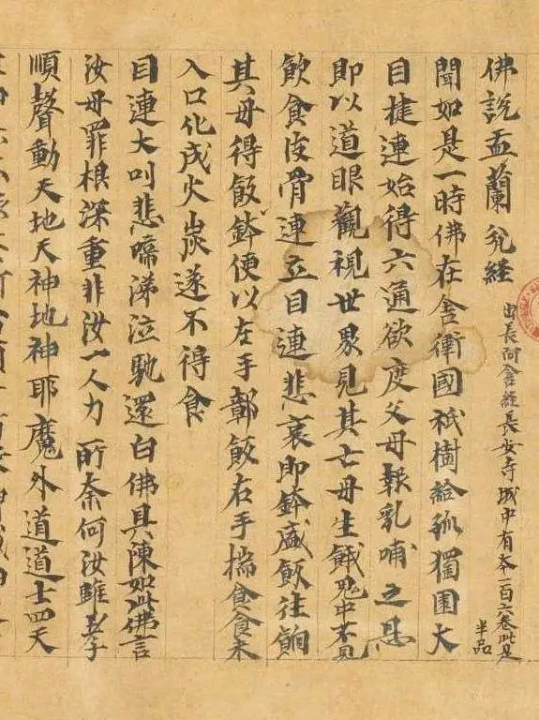 佛說盂蘭瓫經
出長阿含經長安寺城中有本一百六卷此是
半品
聞如是一時佛在舍衛國祇樹給孤獨園大
目揵連始得六通欲度父母報乳哺之恩
即以道眼觀視世界見其亡母生餓鬼中不見
飲食皮骨連立目連悲哀即鉢盛飯往餉
其母母得飯鉢便以左手鄣飯右手揣食食未
入口化成火炭遂不得食
目連大叫悲啼涕泣馳還白佛具陳如此佛言
汝母罪根深重非汝一人力所奈何汝雖孝
順聲動天地天神地神耶魔外道道士四天